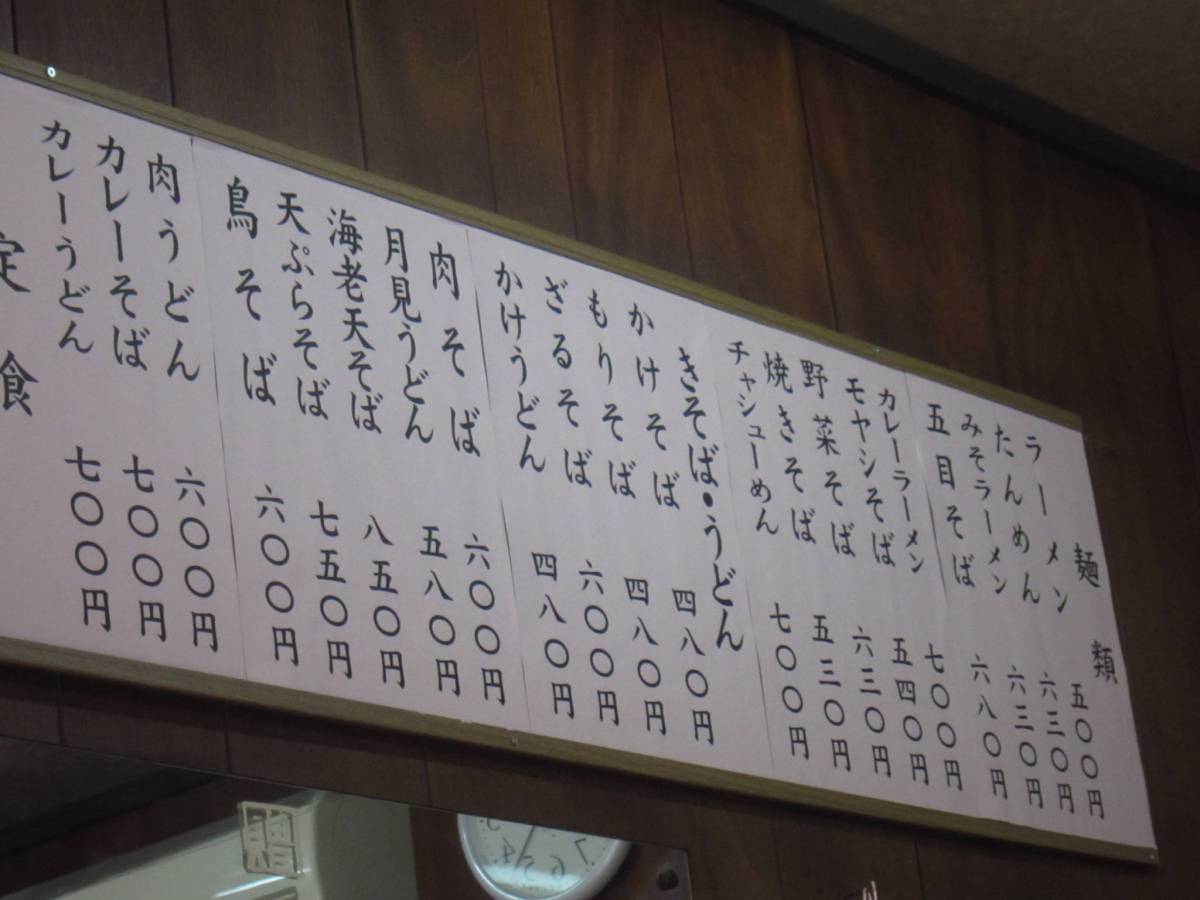 麺類
ラーメン 五〇〇円
たんめん 六三〇円
みそラーメン 六三〇円
五目そば 六八〇円
カレーラーメン 七〇〇円
モヤシそば 五四〇円
野菜そば 六三〇円
焼きそば 五三〇円
チャシューめん 七〇〇円
きそば・うどん
かけそば 四八〇円
もりそば 四八〇円
ざるそば 六〇〇円
かけうどん 四八〇円
肉そば 六〇〇円
月見うどん 五八〇円
海老天そば 八五〇円
天ぷらそば 七五〇円
鳥そば 六〇〇円
肉うどん 六〇〇円
カレーそば 七〇〇円
カレーうどん 七〇〇円
定食